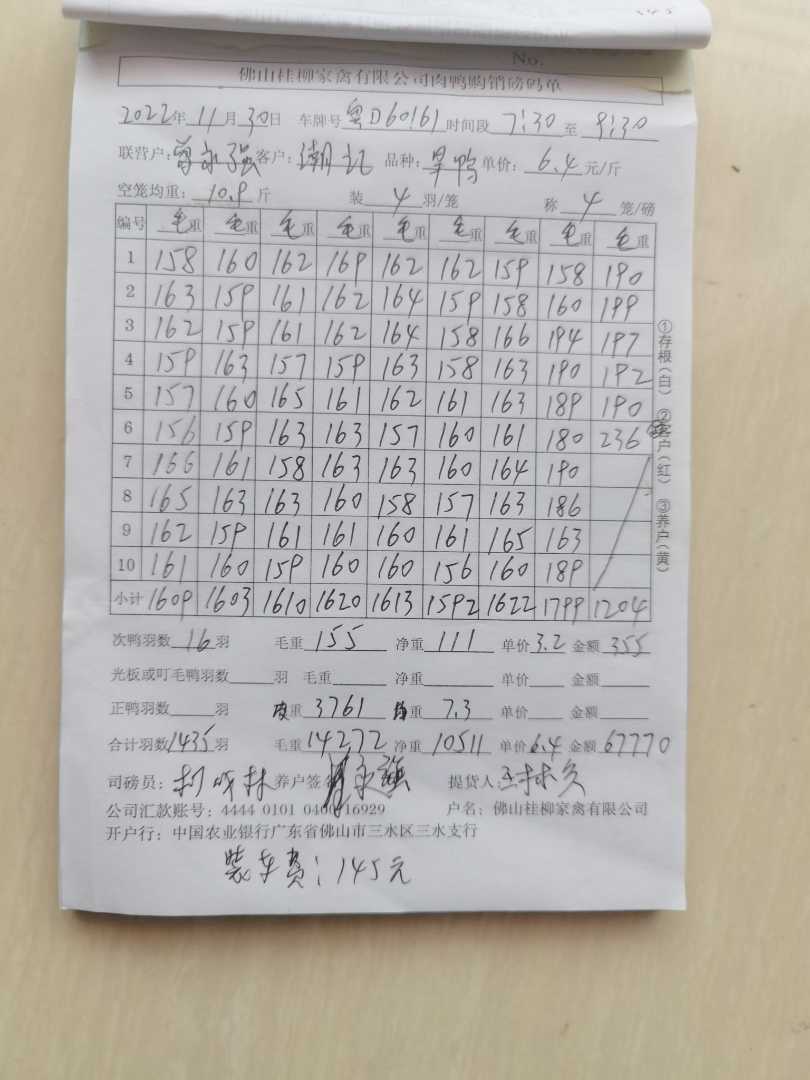 No.
佛山桂柳家禽有限公司肉鸭购销磅码单
2022年 11月 30日 车牌号 粤D60161 时间段 7:30 至 9:30
联营户: 客户: 潮记 品种: 旱鸭 单价: 6.4 元/斤
空笼均重: 10.9 斤 装 4 羽/笼 称 4 笼/磅
编号 毛重 毛重 毛重 毛重 毛重 毛重 毛重 毛重 毛重
1 158 160 162 169 162 162 159 158 190
2 163 159 161 162 164 159 158 160 199
3 162 159 161 162 164 158 166 194 197
4 159 163 157 159 163 158 163 190 192
5 157 160 165 161 162 161 163 189 190
6 156 159 163 163 157 160 161 180 236
7 166 161 158 163 163 160 164 190
8 165 163 163 160 158 157 163 186
9 162 159 161 161 160 161 165 163
10 161 160 159 160 160 156 160 189
小计 1609 1603 1610 1620 1613 1592 1622 1799 1204
次鸭羽数 16 羽 毛重 155 净重 111 单价 3.2 金额 355
光板或叮毛鸭羽数 羽 毛重 净重 单价 金额
正鸭羽数 羽 皮重 3761 均重 7.3 单价 金额
合计羽数 1435 羽 毛重 14272 净重 10511 单价 6.4 金额 67770
司磅员: 养户签 提货人
公司汇款账号: 4444 0101 0400 16929 户名: 佛山桂柳家禽有限公司
开户行: 中国农业银行广东省佛山市三水区三水支行
装车费: 145元
①存根(白) ②客户(红) ③养户(黄)